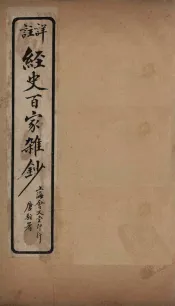 詳註
経史百家雑鈔
上海會文堂印行
唐駝署